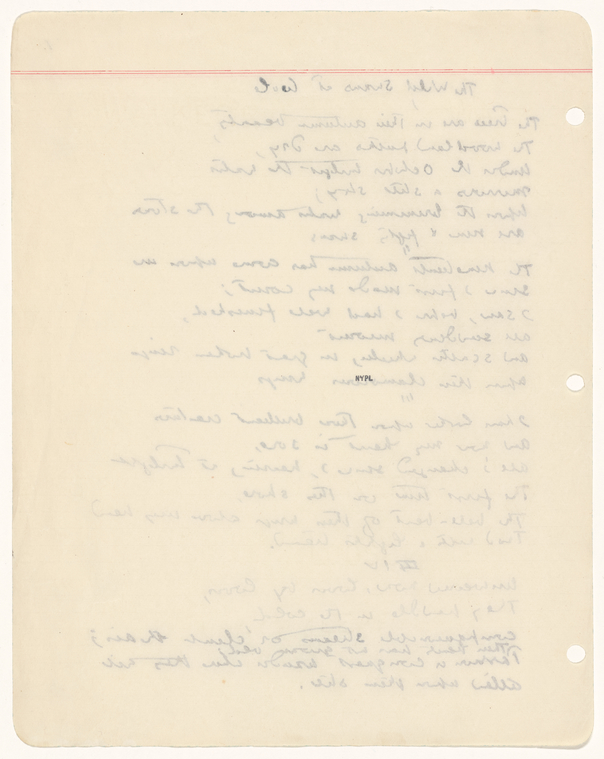 The Wild Swans at Coole
The trees are in their autumn beauty,
The woodland paths are dry,
Under the October twilight the water
mirrors a still sky;
Upon the brimming water among the stones
are nine & fifty swans
II
The nineteenth autumn has come upon me
since I first made my count;
I saw, before I had well finished,
all suddenly mount
and scatter wheeling in great broken rings
upon their clamorous wings
NYPL
III
I have looked upon those brilliant creatures
and now my heart is sore.
all's changed since I, hearing at twilight
The first time on this shore,
The bell-beat of their wings above my head
Trod with a lighter tread.
IV
Unwearied still, lover by lover,
They paddle in the cold
companionable streams or climb the air;
Their hearts have not grown old;
Passion or conquest wander where they will
attend upon them still.